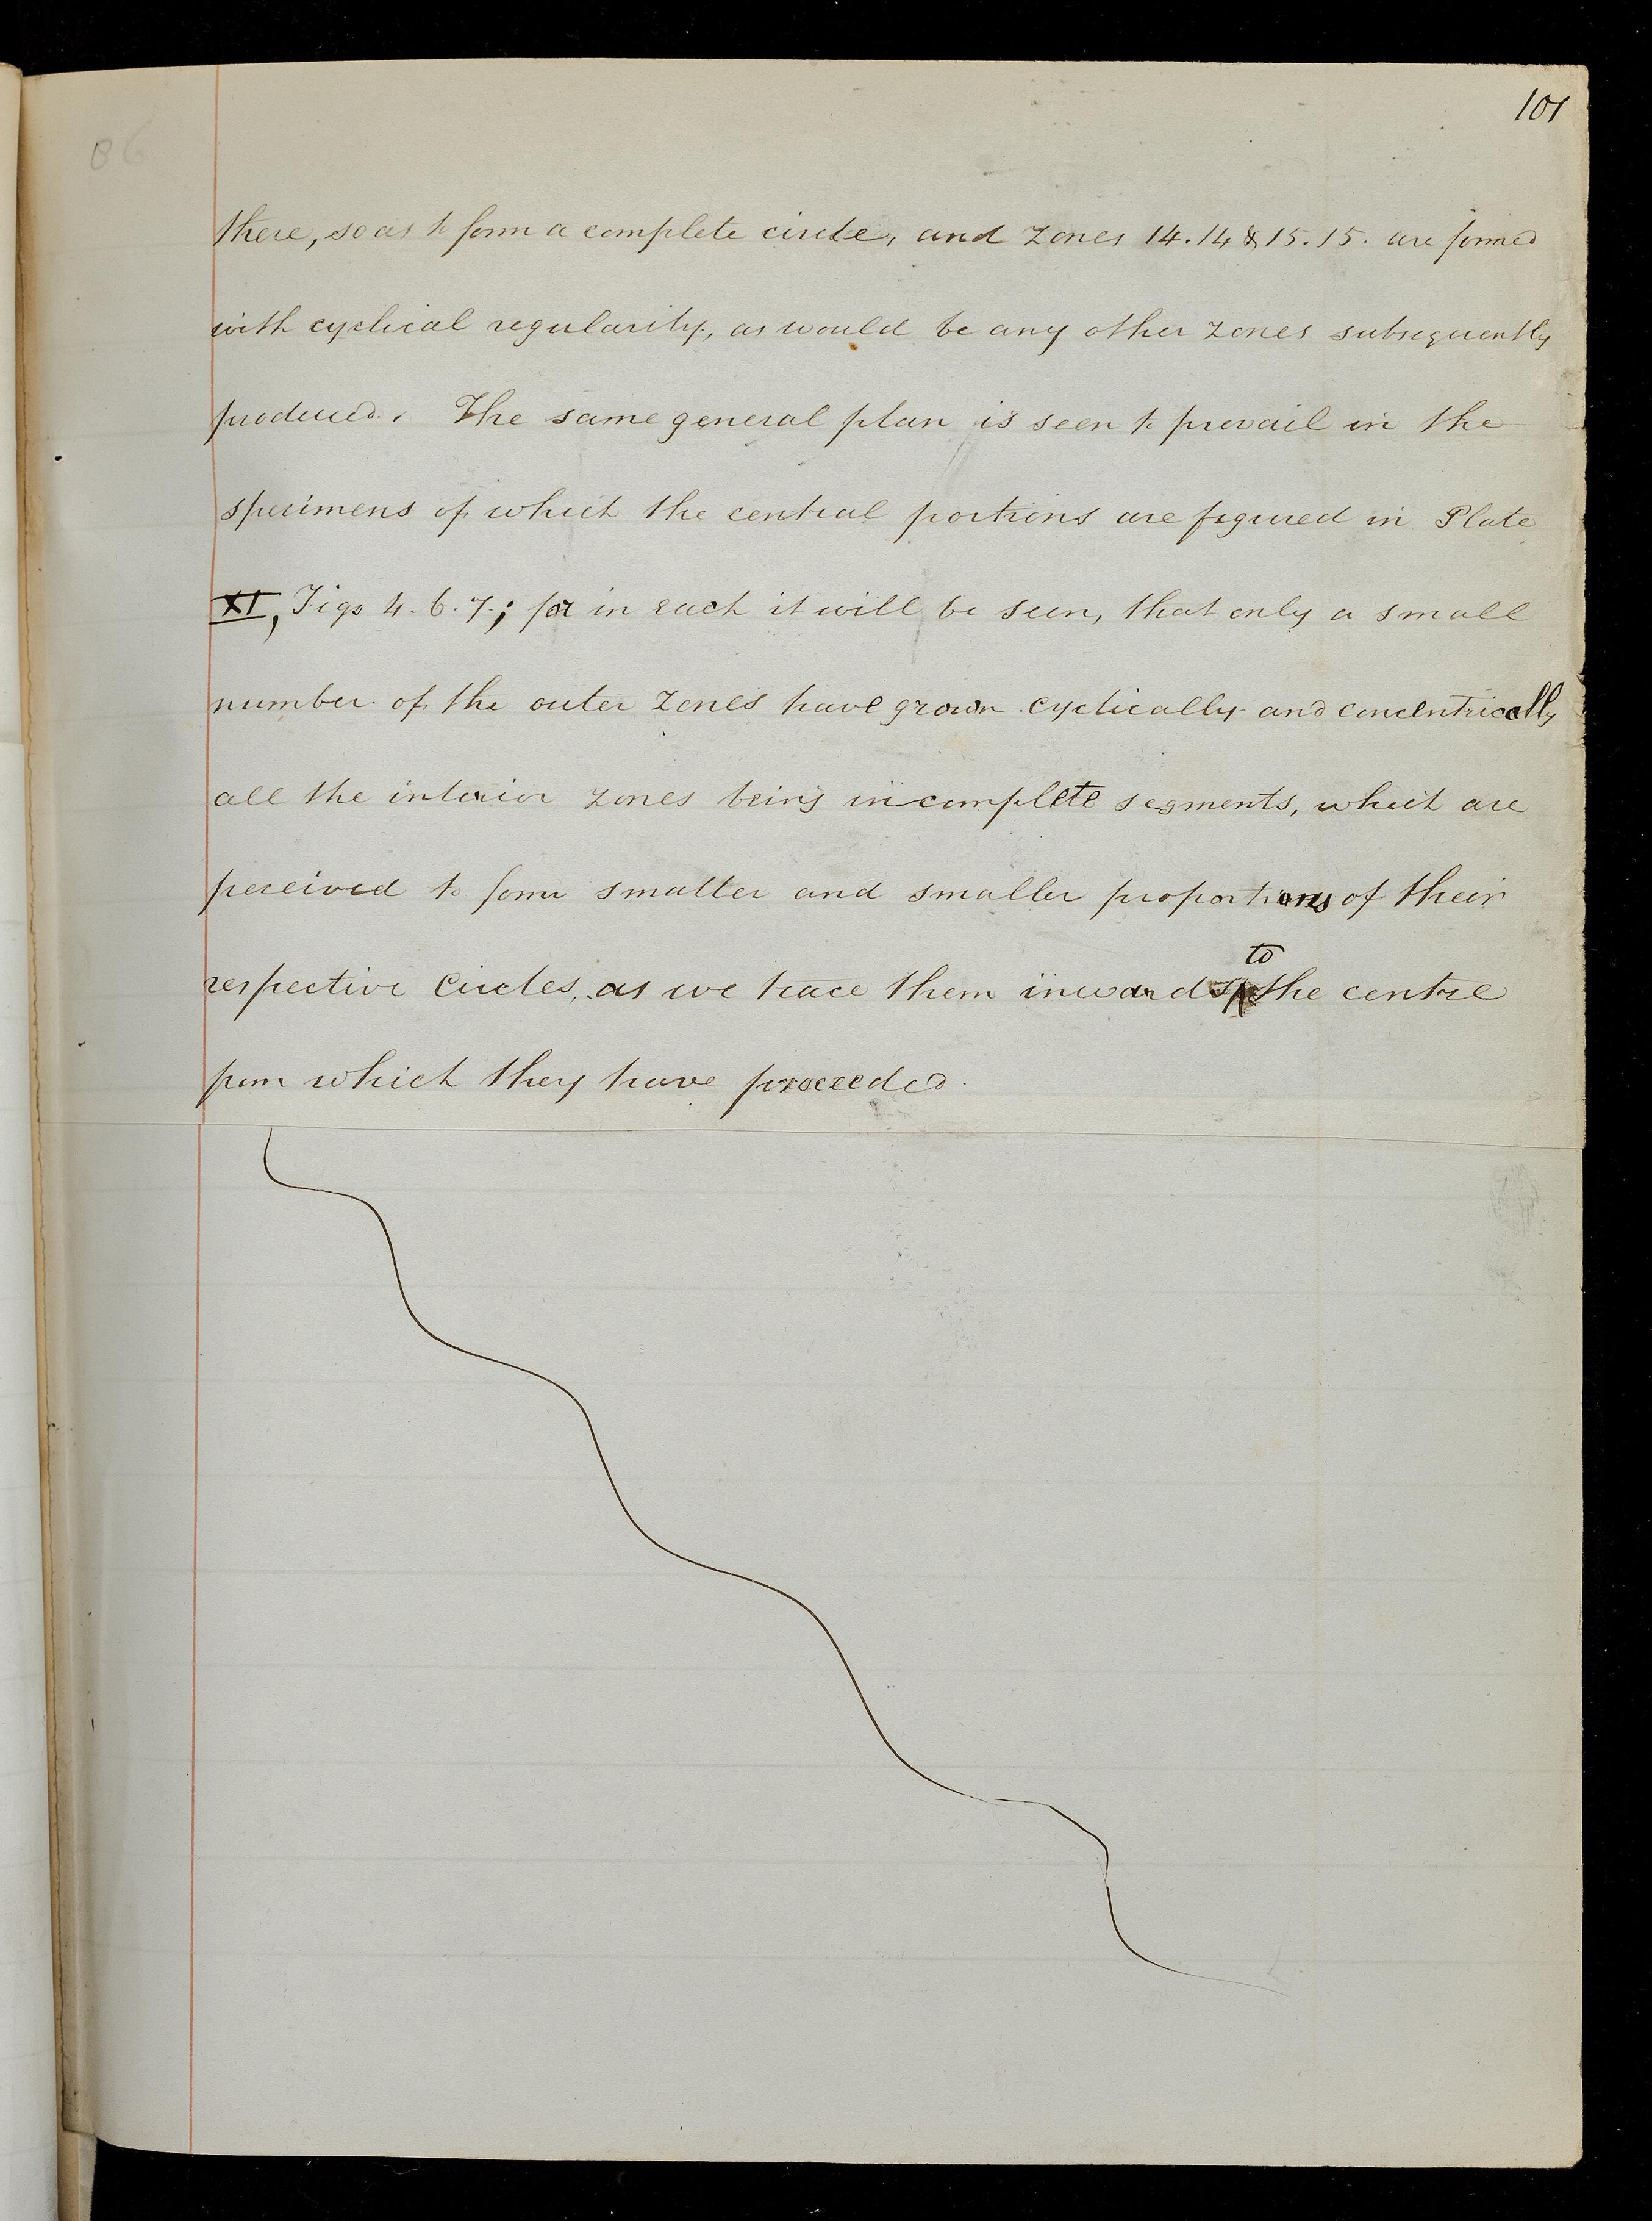 101
86
there, so as to form a complete circle, and zones 14.14 & 15.15. are formed
with cyclical regularity, as would be any other zones subsequently
produced. The same general plan is seen to prevail in the
specimens of which the central portions are figured in Plate
XI, Figs 4. 6. 7.; for in each it will be seen, that only a small
number of the outer zones have grown cyclically and concentrically
all the interior zones being incomplete segments, which are
perceived to form smaller and smaller proportions of their
respective circles, as we trace them inwards to the centre
from which they have proceeded.